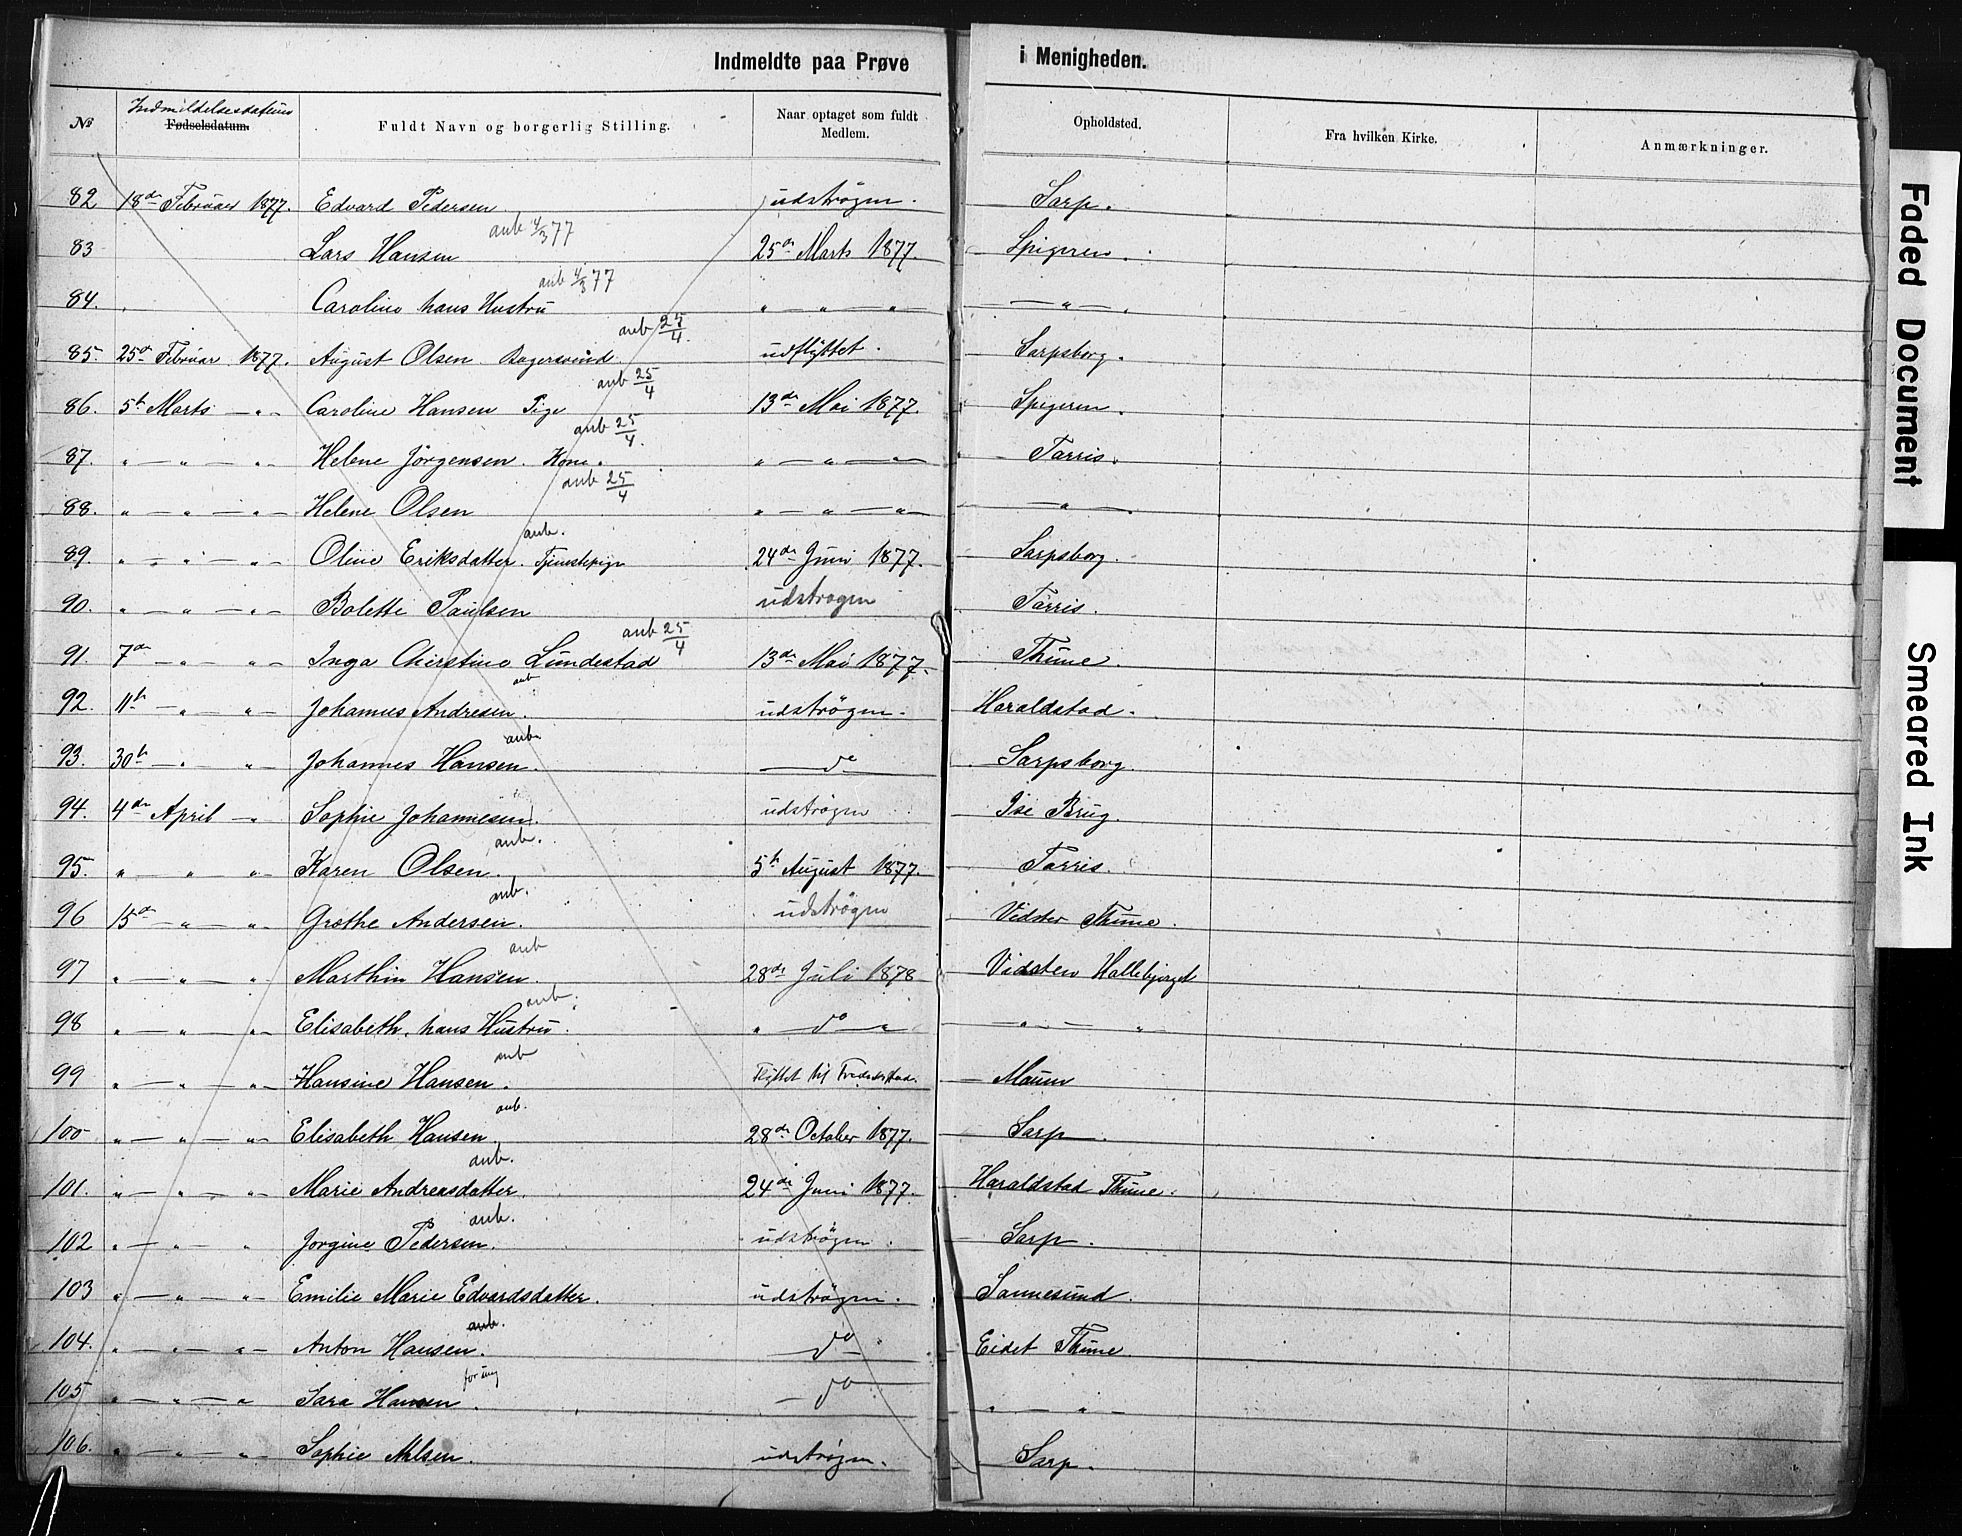 Indmeldte paa Prøve i Menigheden.
Indmeldelsesdatum
№ Fødselsdatum. Fuldt Navn og borgerlig Stilling. Naar optaget som fuldt Medlem. Opholdsted. Fra hvilken Kirke. Anmærkninger.
82 18de Februar 1877. Edvard Pedersen udströgen. Sarp.
anb 4/3 77
83 Lars Hansen 25de Marts 1877. Spigeren.
anb 4/3 77
84. Caroline hans Hustru " — " — " — " —
anb 25/4.
85. 25de Februar 1877. August Olsen Bagersvend udflyttet. Sarpsborg.
anb 25/4
86. 5te Marts — " — Caroline Hansen Pige 13de Mai 1877. Spigeren.
anb 25/4.
87. " — " — " — Helene Jörgensen. Kone. " — " — " — Tarris.
anb 25/4
88. " — " — " — Helene Olsen " — " — " — — " —
anb.
89. " — " — " — Oline Eriksdatter. Tjenstepige 24de Juni 1877. Sarpsborg.
90. " — " — " — Bolette Paulsen udstrogen Tarris.
anb 25/4
91. 7de — " — " — Inga Christine Lundestad 13de Mai 1877. Thune.
anb
92. 11te — " — " — Johannes Andresen. udströgen. Haraldstad.
anb.
93. 30te — " — " — Johannes Hansen. — do — Sarpsborg.
94. 4de April — " Sophie Johannesen. udströgen Ise Brug.
anb.
95. " " " — Karen Olsen. 5te August 1877. Tarris.
anb.
96 15de — " — " — Grethe Andersen. udströgen Vidsten Thune.
anb
97 " — " — " Marthin Hansen. 28de Juli 1878 Vidsten Hallebjerget
anb.
98 " — " — " — Elisabeth, hans Hustru. " — do — " — " — "
anb
99 " — " — " — Hansine Hansen. Flyttet til Fredrikstad. Maum
anb.
100 " — " — " — Elisabeth Hansen. 28de October 1877. Sarp.
anb.
101. " — " — " — Marie Andreasdatter. 24de Juni 1877. Haraldstad Thune.
anb.
102 " — " — " Jorgine Pedersen. udströgen. Sarp.
103 " — " — " — Emilie Marie Edvardsdatter. udströgen. Sannesund.
anb.
104. " — " — " — Anton Hansen. — do — Eidet Thune.
for ung
105 " — " — " Sara Hansen. — do — " — " —
106. " — " — " — Sophie Nilsen. udströgen. Sarp.
Faded Document
Smeared Ink